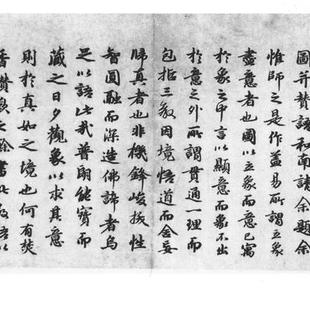 圖并贊語和南請余題余
惟師之是作蓋易所謂立象
盡意者也圖以立象而意已寓
於象之中言以顯意而象不出
於意之外所謂貫通一理而
包括三教因境悟道而舍妄
歸真者也非機鋒峻拔性
智圓融而深造佛諦者烏
足以語此哉普明能寶而
藏之日夕觀象以求其意
則於真如之境也何有焚
香贊歎之餘書此以